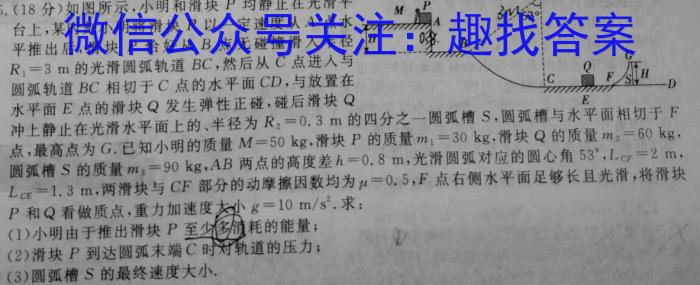 5.(18分)如图所示,小明和滑块P均静止在光滑平
台上,某
微信公众号关注:趣找答案
平推出后
R₁=3 m的光滑圆弧轨道BC,然后从C点进入与
圆弧轨道BC相切于C点的水平面CD,与放置在
水平面E点的滑块Q发生弹性正碰,碰后滑块Q
冲上静止在光滑水平面上的、半径为R₂=0.3 m的四分之一圆弧槽S,圆弧槽与水平面相切于F
点,最高点为G.已知小明的质量M=50 kg,滑块P的质量m₁=30 kg,滑块Q的质量m₂=60 kg,
圆弧槽S的质量m₃=90 kg,AB两点的高度差h=0.8 m,光滑圆弧对应的圆心角53°,L_CF=2 m,
L_CE=1.3 m,两滑块与CF部分的动摩擦因数均为μ=0.5,F点右侧水平面足够长且光滑,将滑块
P和Q看做质点,重力加速度大小g=10 m/s².求:
(1)小明由于推出滑块P至少多消耗的能量;
(2)滑块P到达圆弧末端C时对轨道的压力;
(3)圆弧槽S的最终速度大小.
M P
A
C Q E F G S H D